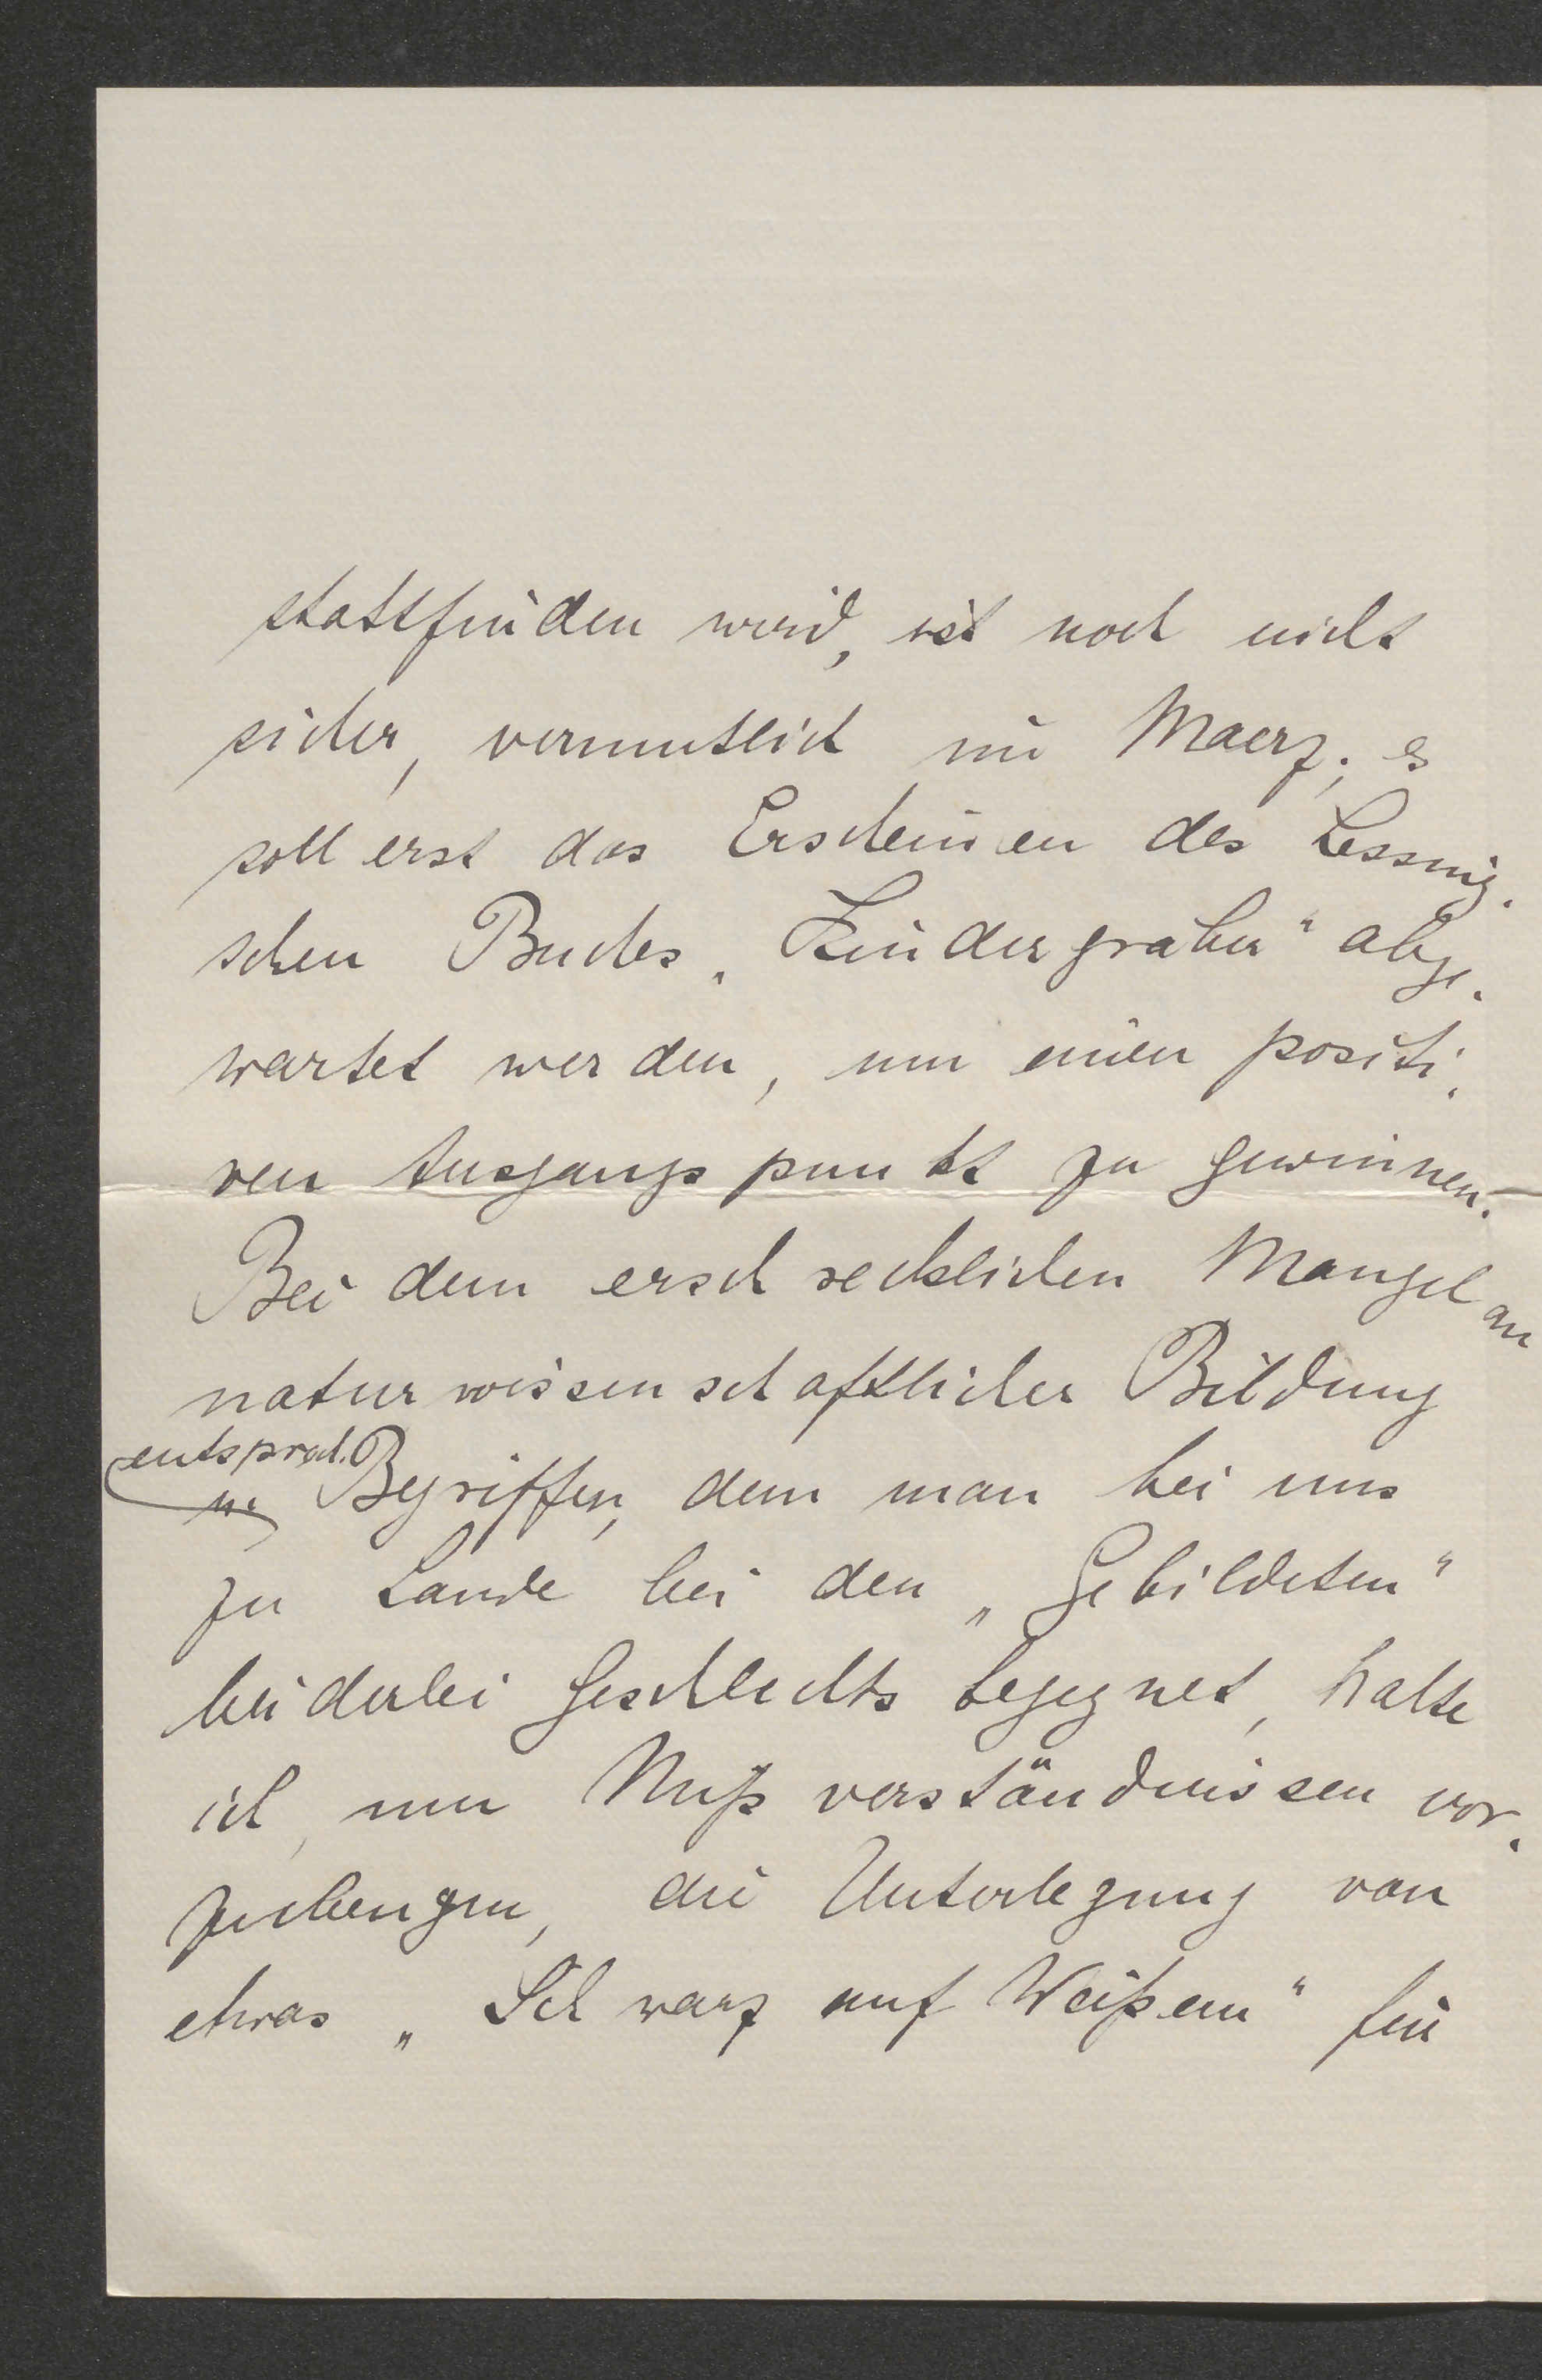 stattfinden wird, ist noch nicht
sicher, vermutlich im Maerz; es
soll erst das Erscheinen des Lessing-
schen Buches „Kindergräber“ abge-
wartet werden, um einen positi-
ven Ausgangspunkt zu gewinnen.
Bei dem erschrecklichen Mangel an
naturwissenschaftlicher Bildung
entsprech.
u. Begriffen, dem man bei uns
zu Lande bei den „Gebildeten“
beiderlei Geschlechts begegnet, halte
ich, um Mißverständnissen vor-
zubeugen, die Unterlegung von
etwas „Schwarz auf Weißem“ für